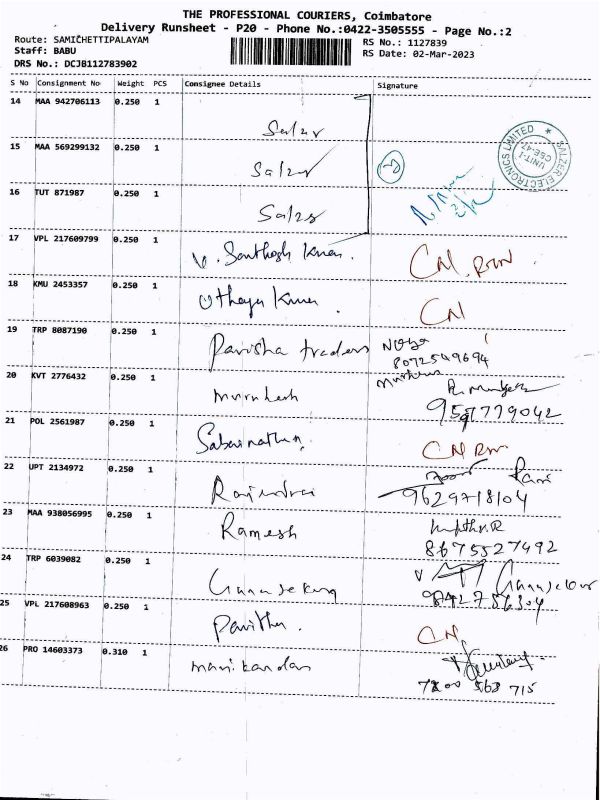 THE PROFESSIONAL COURIERS, Coimbatore
Delivery Runsheet - P20 - Phone No.:0422-3505555 - Page No.:2
Route: SAMICHETTIPALAYAM
RS No.: 1127839
Staff: BABU
RS Date: 02-Mar-2023
DRS No.: DCJB112783902
S No Consignment No Weight PCS Consignee Details Signature
14 MAA 942706113 0.250 1
Salzr
15 MAA 569299132 0.250 1
Salzr
SALZER ELECTRONICS LIMITED
UNIT-I
CBE-47
16 TUT 871987 0.250 1
Salzr
17 VPL 217609799 0.250 1 V. Santhosh Kumar. CN. RTN
18 KMU 2453357 0.250 1 Uthaya Kumar. CN
19 TRP 8087190 0.250 1 Pavisha traders
8072549694
20 KVT 2776432 0.250 1 Murukesh
9597779042
21 POL 2561987 0.250 1 Sabarinathan. CN RTN
22 UPT 2134972 0.250 1 Rajendran
9629718104
23 MAA 938056995 0.250 1 Ramesh
8675527492
24 TRP 6039082 0.250 1 Gunasekaran
25 VPL 217608963 0.250 1 Pavithra. CN
26 PRO 14603373 0.310 1 Manikandan
7200 563 715